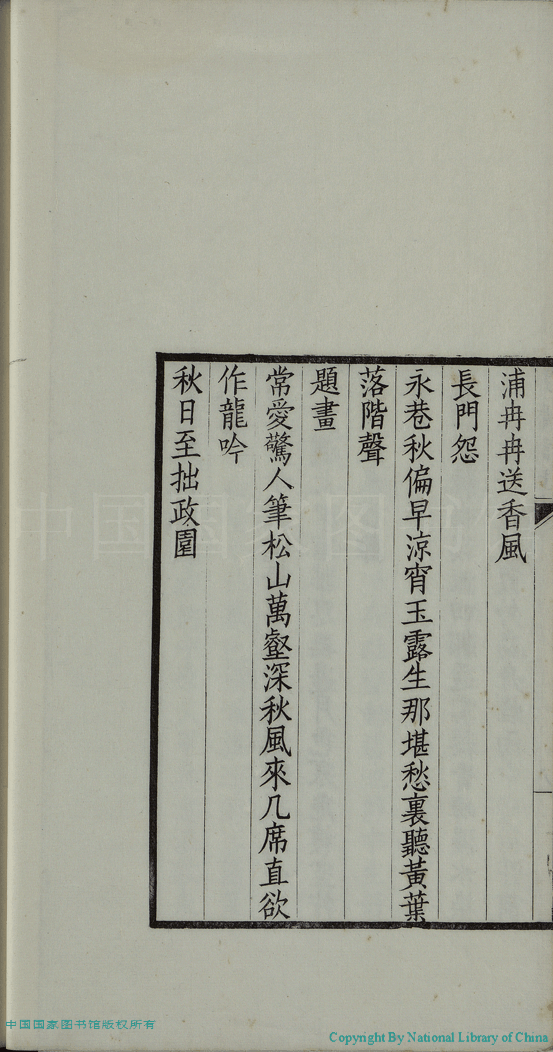 浦冉冉送香風
長門怨
永巷秋偏早涼宵玉露生那堪愁裏聽黃葉
落階聲
題畫
常愛驚人筆松山萬壑深秋風來几席直欲
作龍吟
秋日至拙政園
中国国家图书
中国国家图书馆版权所有
Copyright By National Library of China